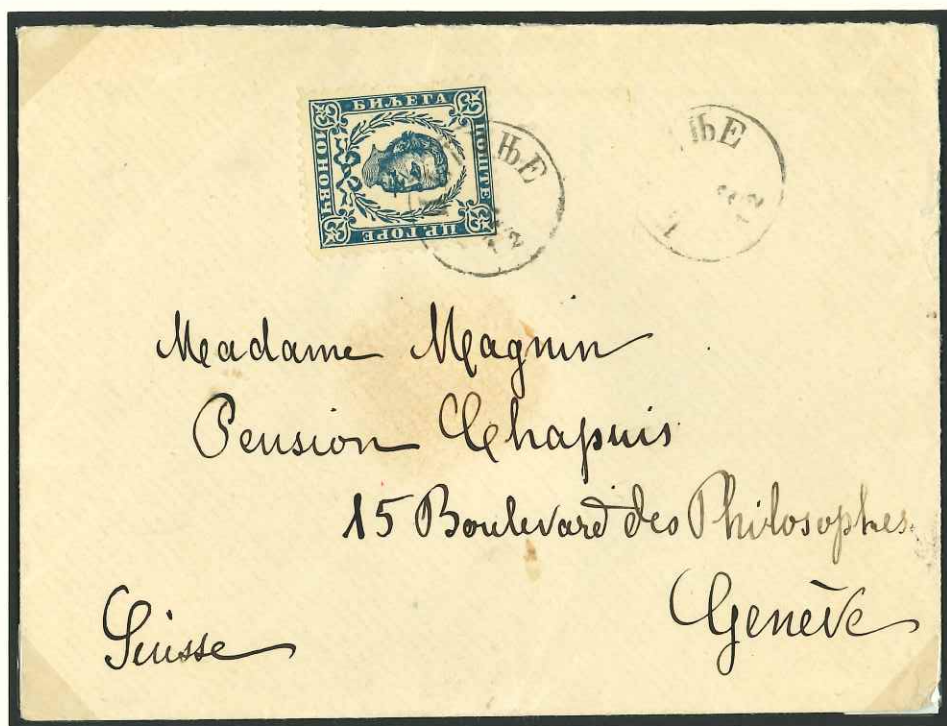 БИЉЕГА
ПОШТЕ
ЦР. ГОРЕ
Madame Magnin
Pension Chapuis
15 Boulevard des Philosophes
Genève
Suisse